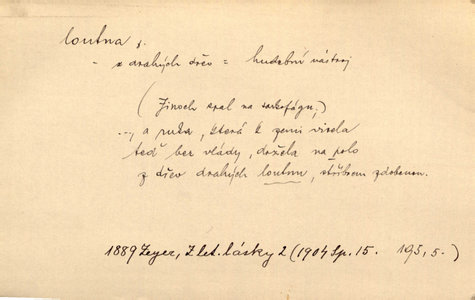 loutna f.
- z drahých dřev = hudební nástroj
(Jinoch spal na sarkofágu,)
..., a ruka, která k zemi visela
teď bez vlády, držela na polo
z dřev drahých loutnu, stříbrem zdobenou.
1889 Zeyer, Z let. lásky 2 (1904 Sp. 15. 195, 5.)